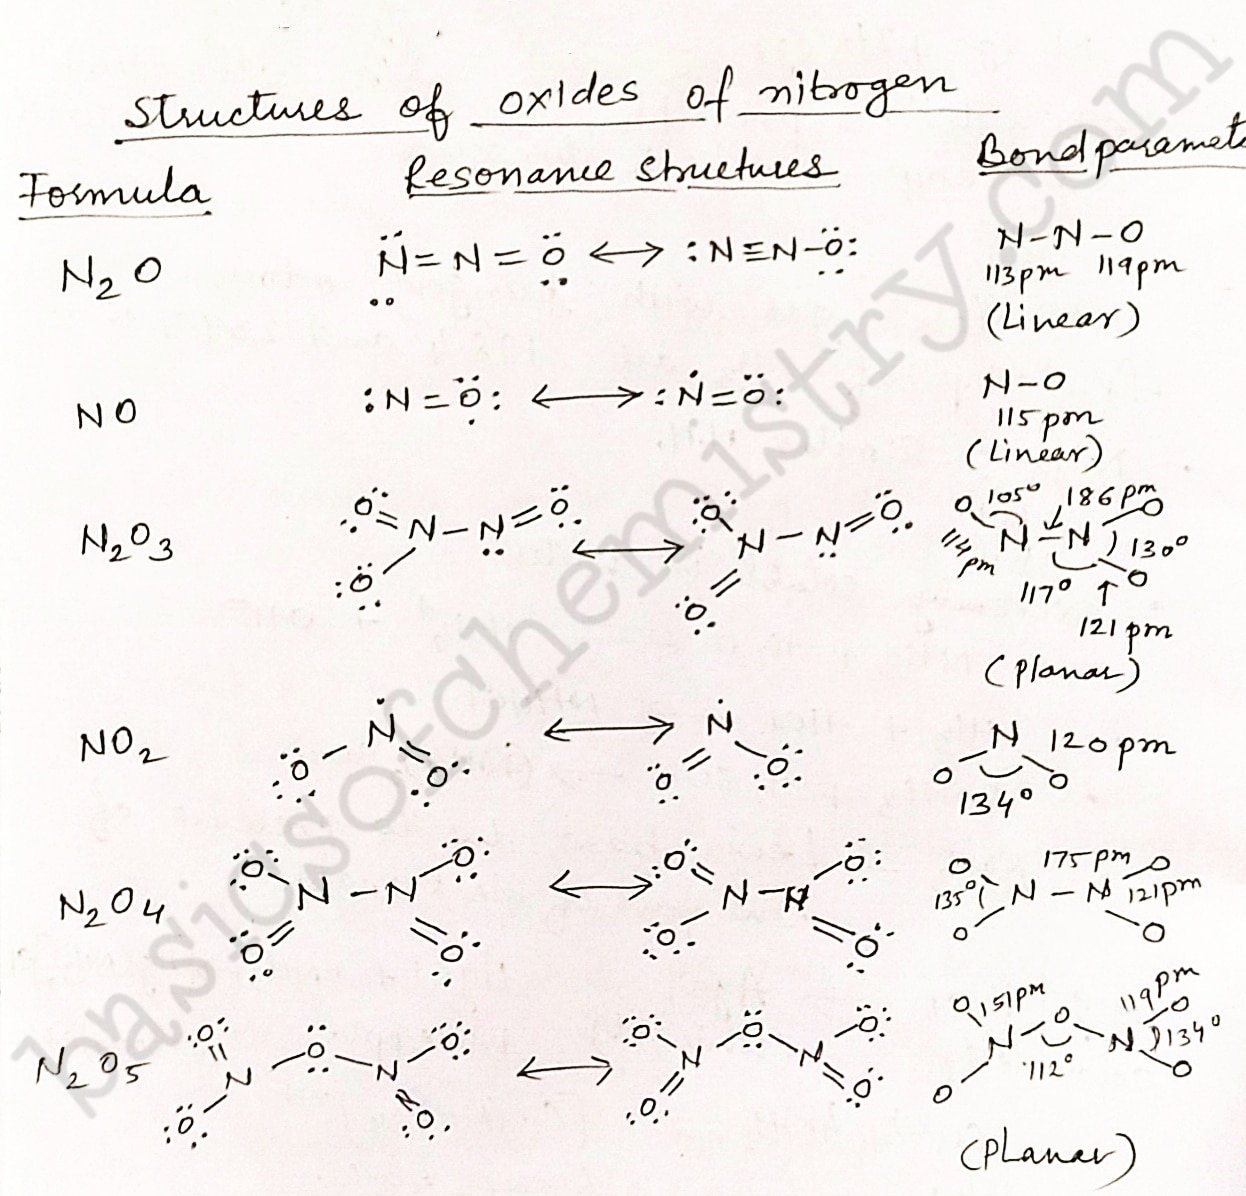 Structures of oxides of nitrogen
Formula Resonance structures Bond paramet
N2O N̈=N=Ö ↔ :N≡N-Ö: N-N-O
113pm 119pm
(Linear)
NO :N=Ö: ↔ :Ṅ=Ö: N-O
115 pm
(Linear)
N2O3 O=N-N=O ↔ O N-N=O O 105° 186 pm O
O O N-N 130°
114 pm
117° ↑ O
121 pm
(Planar)
NO2 Ṅ ↔ Ṅ N 120 pm
O O O O O O
134°
N2O4 O N-N O ↔ O N-N O O 175 pm O
135° N-N 121pm
O O O O O O
N2O5 O N O N O ↔ O N O N O O 151pm O 119pm O
N N 134°
112°
O O O O O O
(PLanar)
basicsofchemistry.com